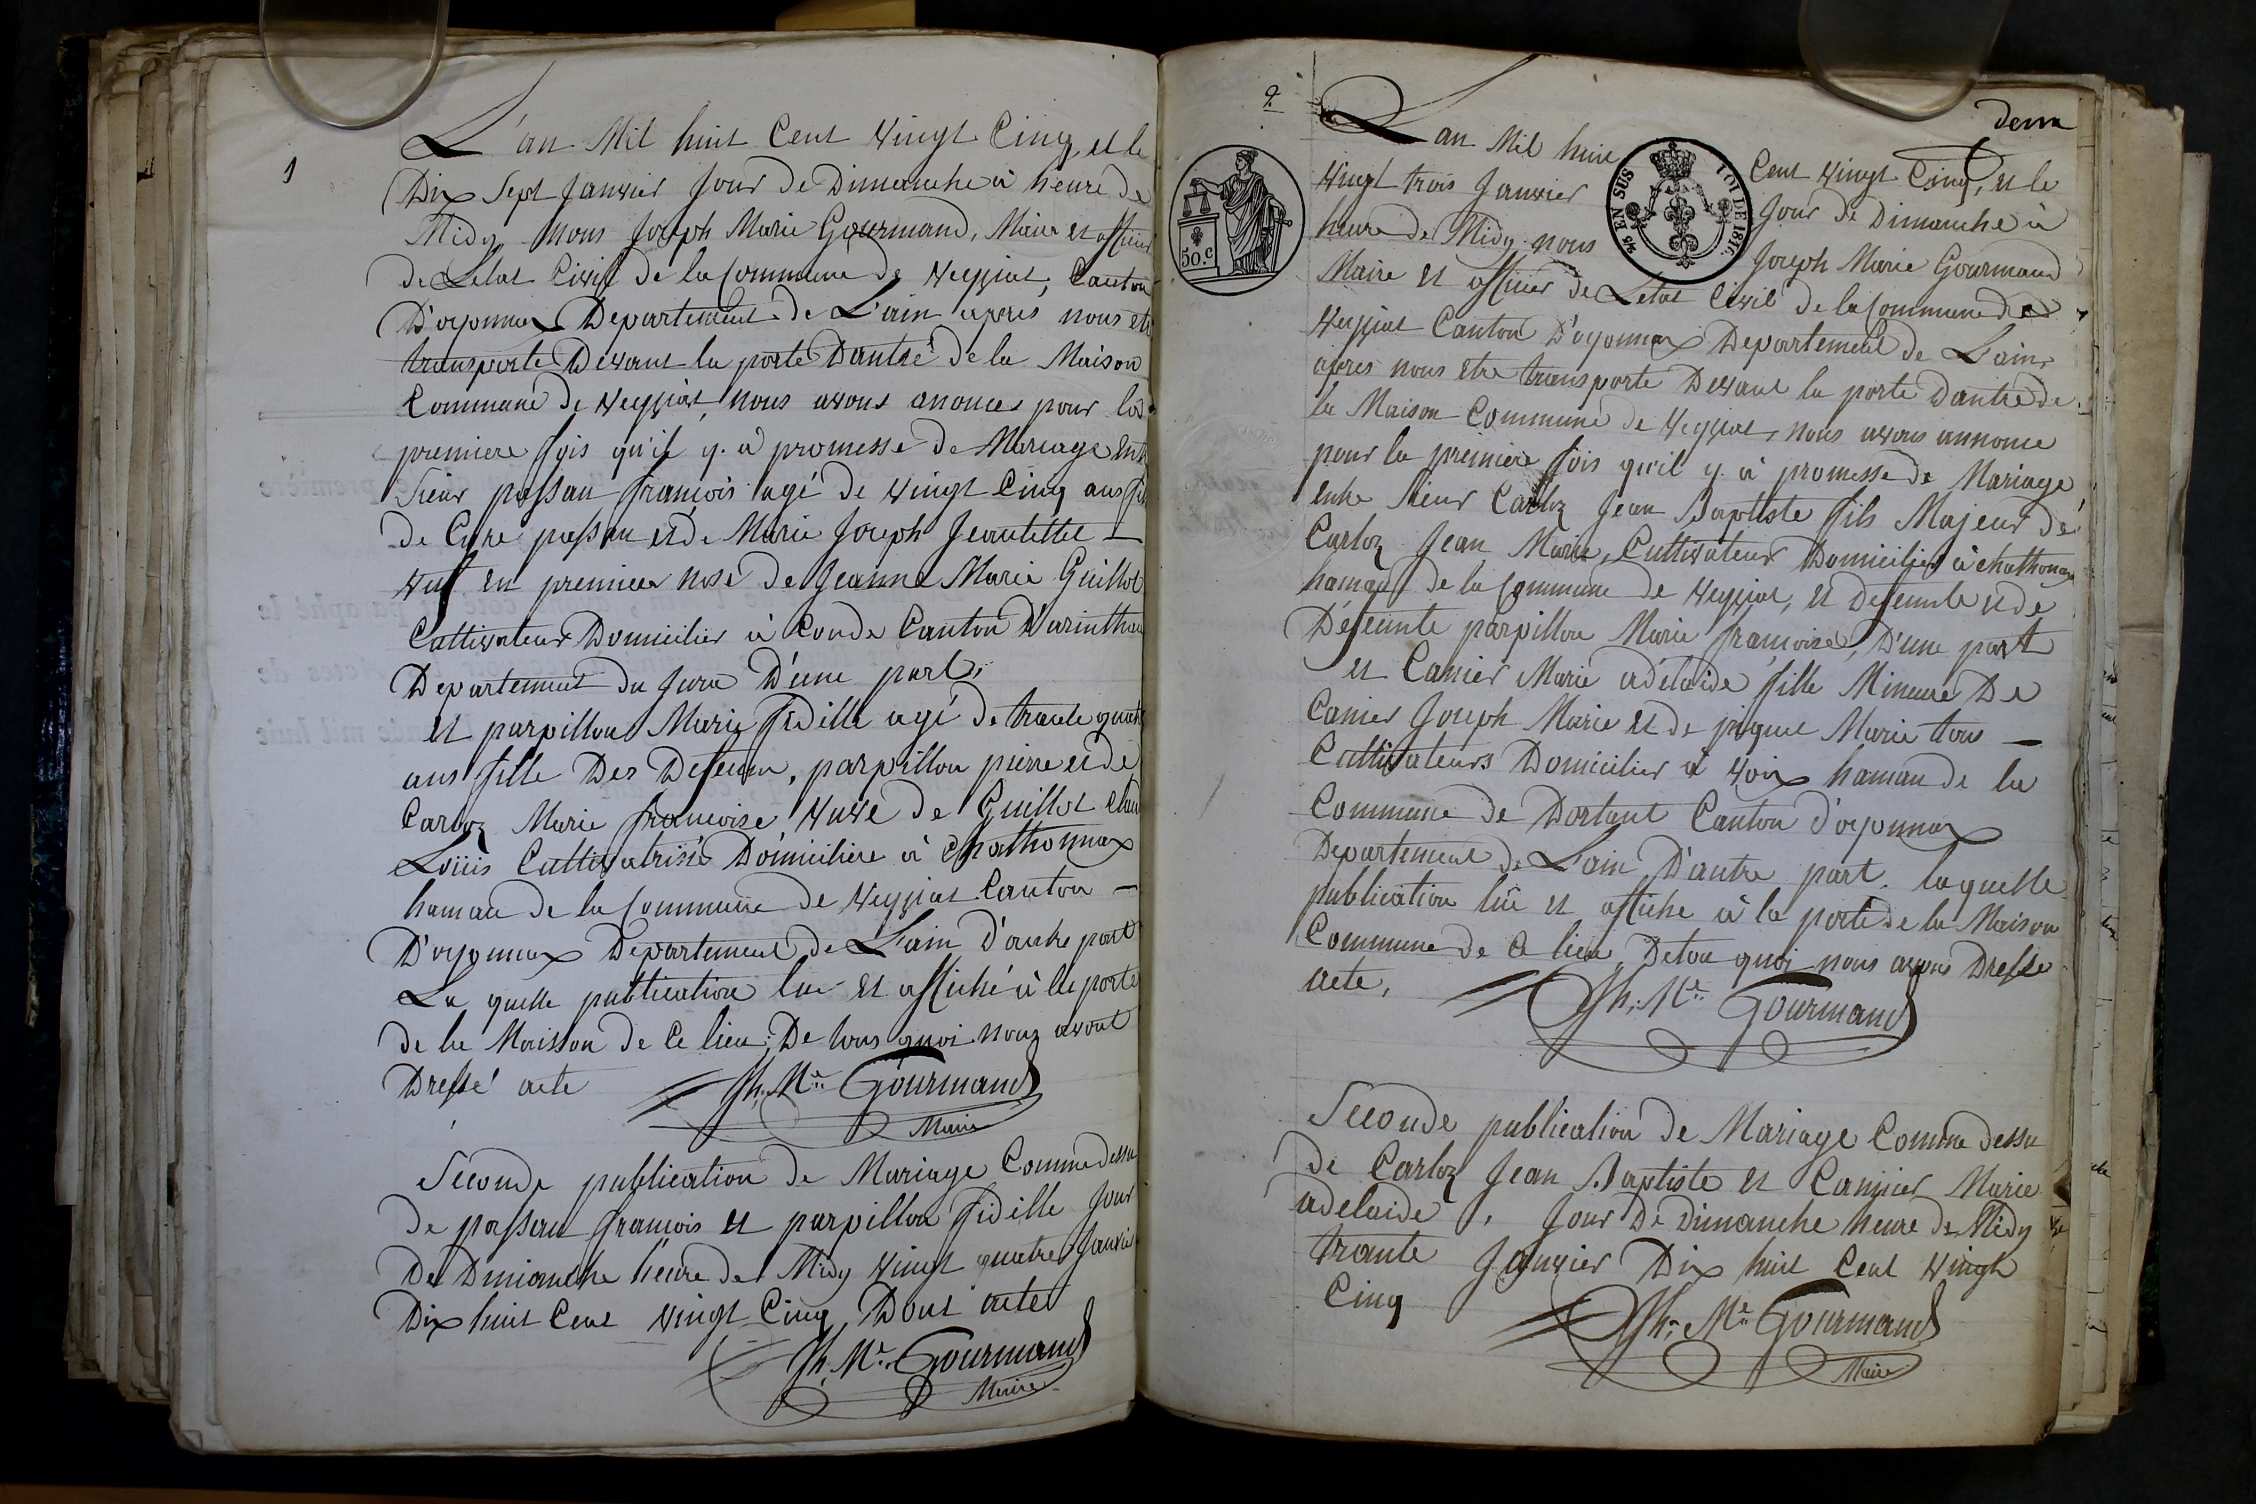 1
L'an Mil huit Cent Vingt Cinq, et le
Dix Sept Janvier Jour de Dimanche à heure de
Midy nous Joseph Marie Gourmand, Maire et officier
de Letat Civil de la Commune de Veyziat, Canton
D'oyonnax Departement de L'ain apres nous etre
transporte Devant la porte Dantré de la Maison
Commune de Veyziat, nous avons anonces pour la
premiere fois qu'il y. a promesse de Mariage entre
Sieur passau françois agé de Vingt Cinq ans fils
de Cyre passau et de Marie Joseph Jeantettet —
Vuf en premiere nose de Jeanne Marie Guillot
Cultivateur Domicilier à Conde Canton D'arinthau
Departement du Jura D'une part,
et parpillou Marie fidille agé de trante quatre
ans fille Des Defeun, parpillon pierre et de
Carloz Marie francoise Vuve de Guillot
Loüis Cultivatrise Domiciliere à Chathonnax
hamau de la Commune de Veyziat Canton —
D'oyonnax Departement de L'ain D'autre part
La quelle publication lue et affiché à la porte
de la Maisson de Ce lieu. De tous quoi nous avont
Dressé acte
Jh. Mie Gourmand
Maire
Seconde publication de Mariage Comme dessu
de passau francois et parpillon fidille Jour
De Dimanche heure de Midy Vingt quatre Janvier
Dix huit Cent Vingt Cinq Dont acte
Jh. Mie Gourmand
Maire
2.
deux
50.c
EN SUS LOI DE 1816.
Lan Mil huit Cent Vingt Cinq, et le
Vingt trois Janvier Jour de Dimanche à
heure de Midy nous Joseph Marie Gourmand
Maire et officier de Letat Civil de la Commune de
Veyziat Canton D'oyonnax Departement de L'ain
apres nous etre transporte Devant la porte Dantré de
la Maison Commune de Veyziat, nous avons annonce
pour la premiere fois qu'il y. à promesse de Mariage
entre Sieur Carloz Jean Baptiste fils Majeur de
Carloz Jean Marie, Cultivateur Domicilier à Chathonnax
hamau de la Commune de Veyziat, et Defeunte et de
Defeunte parpillon Marie françoise, D'une part
et Canier Marie adelaide fille Mineure De
Canier Joseph Marie et de piquet Marie tous —
Cultivateurs Domicilier à Voix hamau de la
Commune de Dortant Canton d'oyonnax
Departement de L'ain D'autre part. laquelle
publication lue et affiche à la porte de la Maison
Commune de Ce lieu, De tou quoi nous avons Dresse
acte,
Jh. Mie Gourmand
Seconde publication de Mariage Comme dessu
de Carloz Jean Baptiste et Canier Marie
adelaide, Jour De Dimanche heure de Midy
trante Janvier Dix huit Cent Vingt
Cinq
Jh. Mie Gourmand
Maire